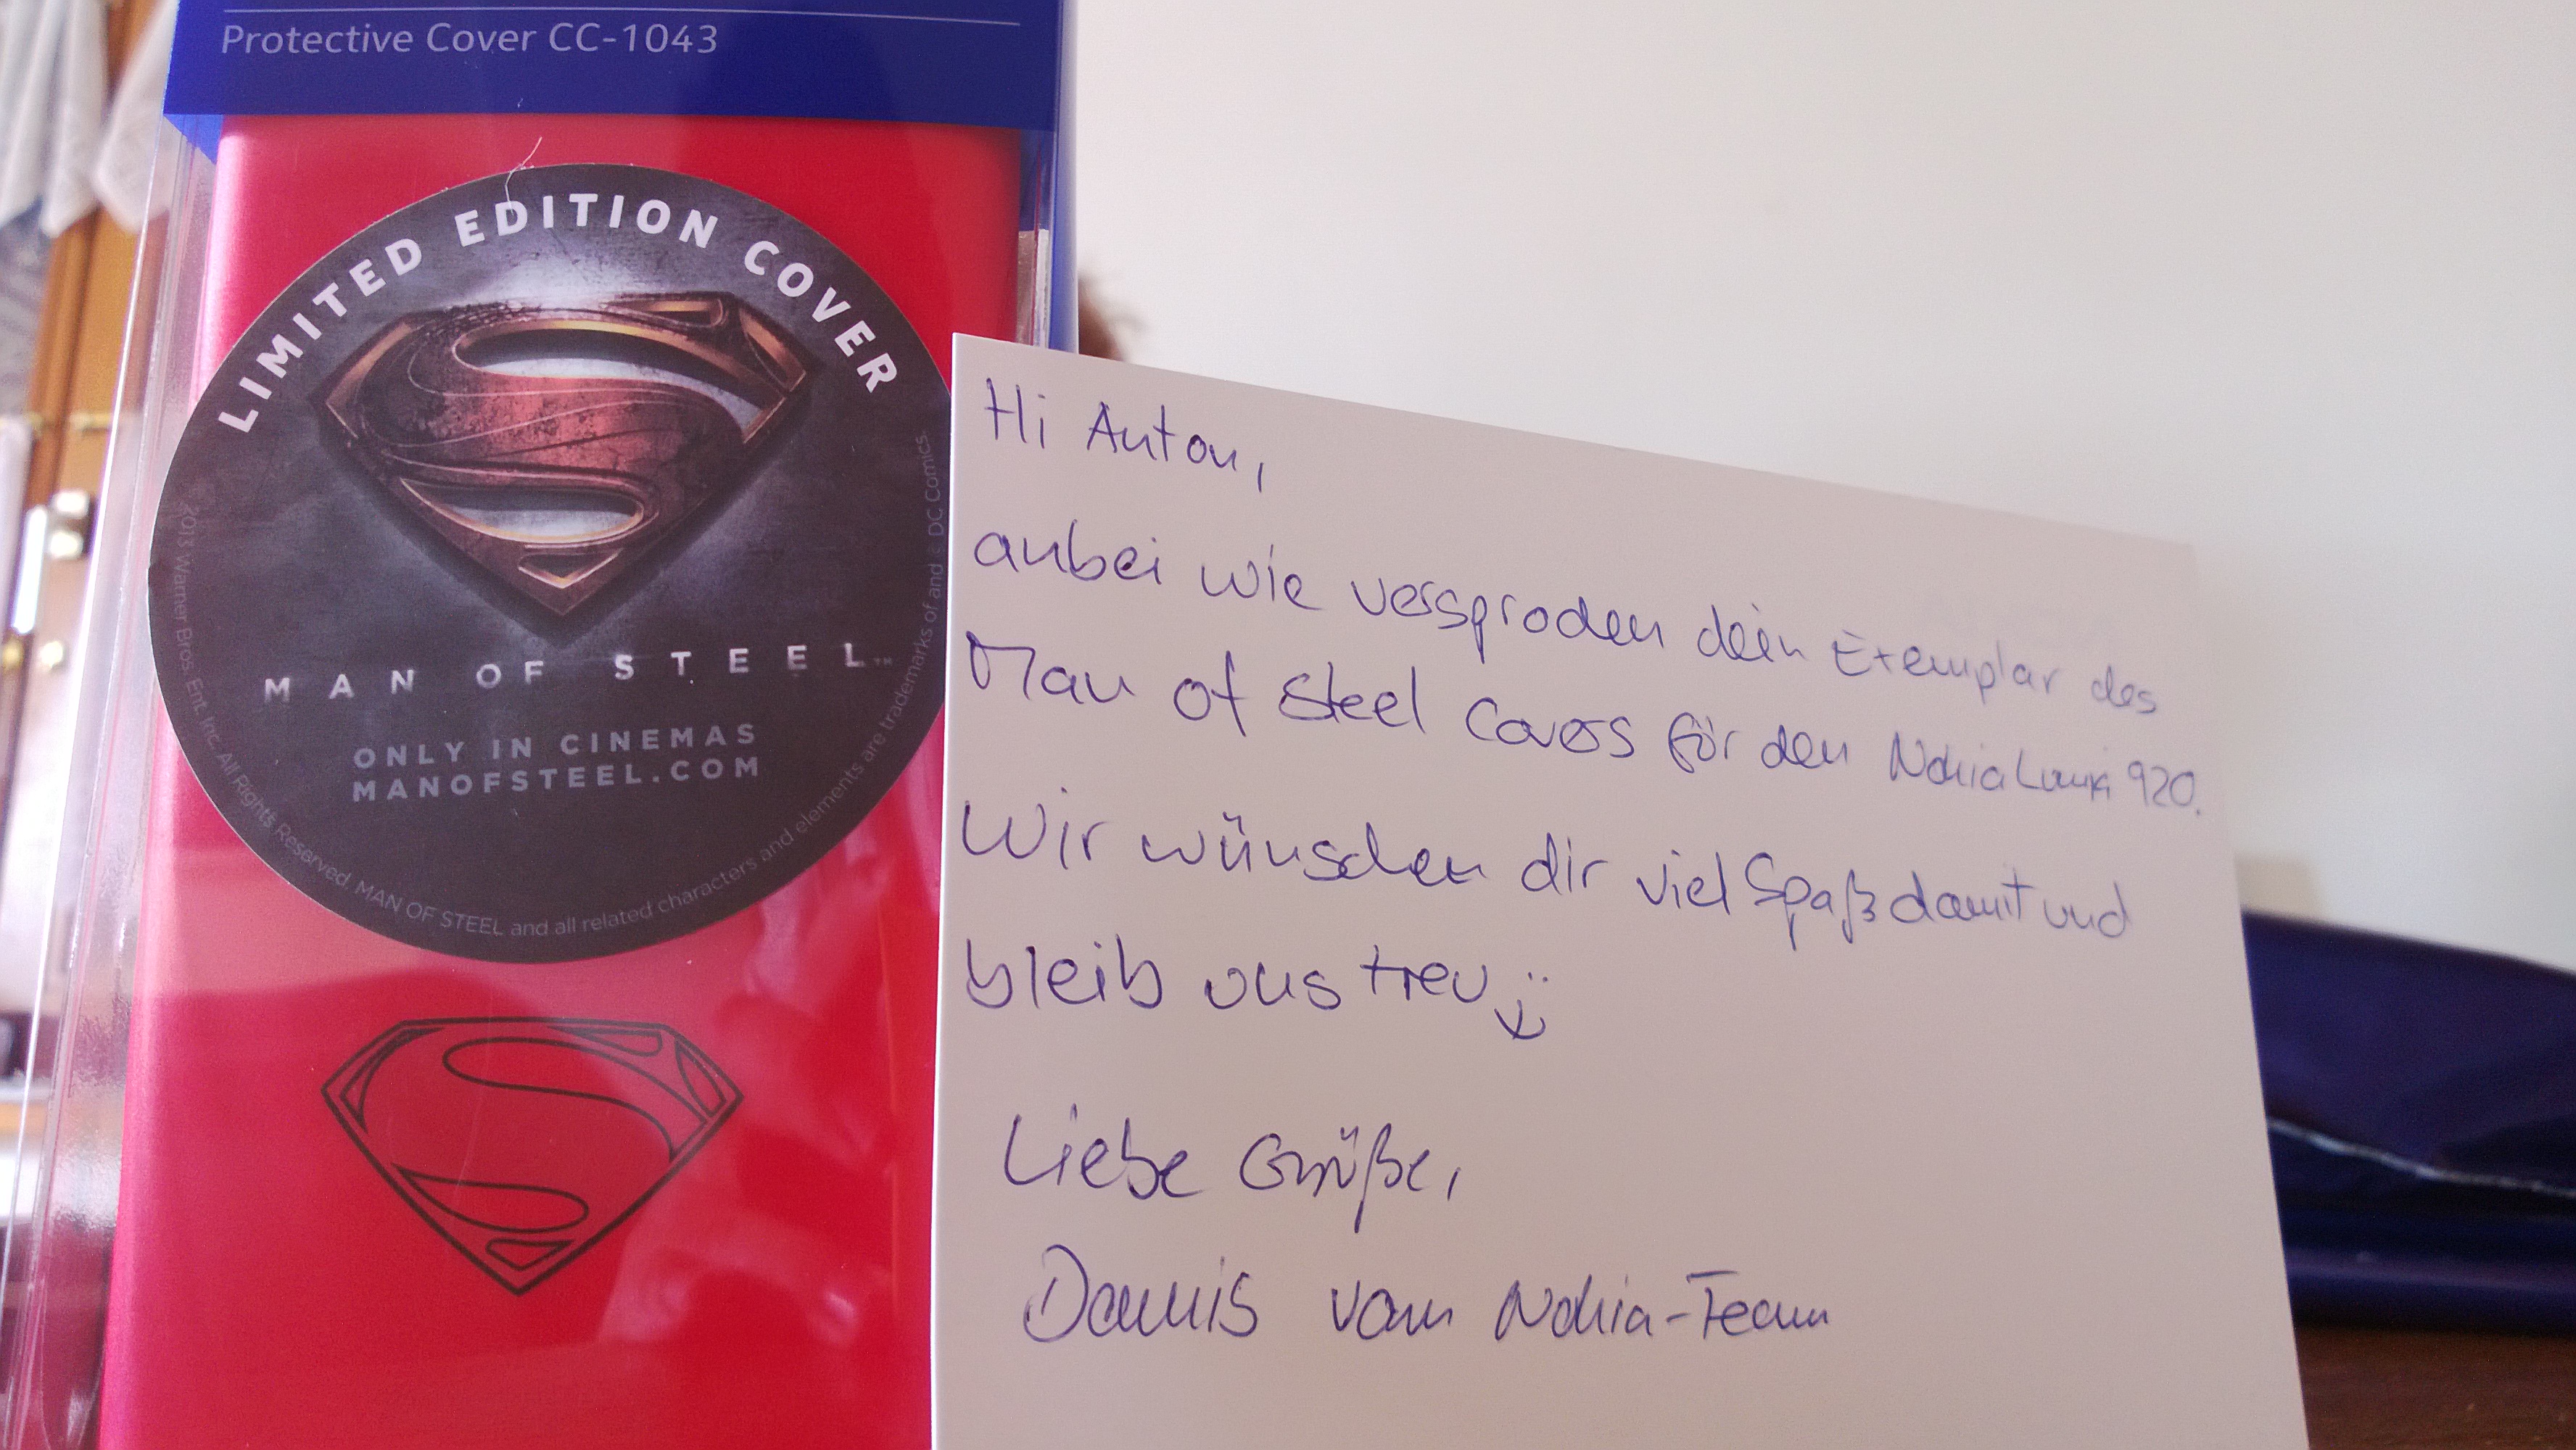 Protective Cover CC-1043
LIMITED EDITION COVER
MAN OF STEEL™
ONLY IN CINEMAS
MANOFSTEEL.COM
2013 Warner Bros. Ent. Inc. All Rights Reserved. MAN OF STEEL and all related characters and elements are trademarks of and © DC Comics.
Hi Anton,
anbei wie versprochen dein Exemplar des
Man of Steel Covers für den Nokia Lumia 920.
Wir wünschen dir viel Spaß damit und
bleib uns treu
Liebe Grüße,
Dannis vom Nokia-Team